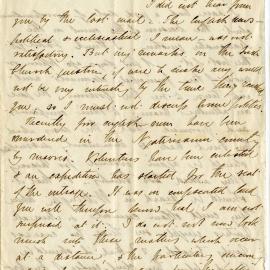 I did not hear from
you by the last mail. The English news
political & ecclesiastical I mean – was not
satisfactory. But my remarks on the Irish
Church question, if I were to make any would
not be very interesting by the time they reached
you, so I must not discuss home politics.
Recently four english men have been
murdered in the country
by maoris. Volunteers have been enlisted
& an expedition has started for the seat
of the outrage. It was on confiscated land
you will therefore learn that I am not
surprised at it. I do not now look
much into these matters which occur
at a distance, & the particular